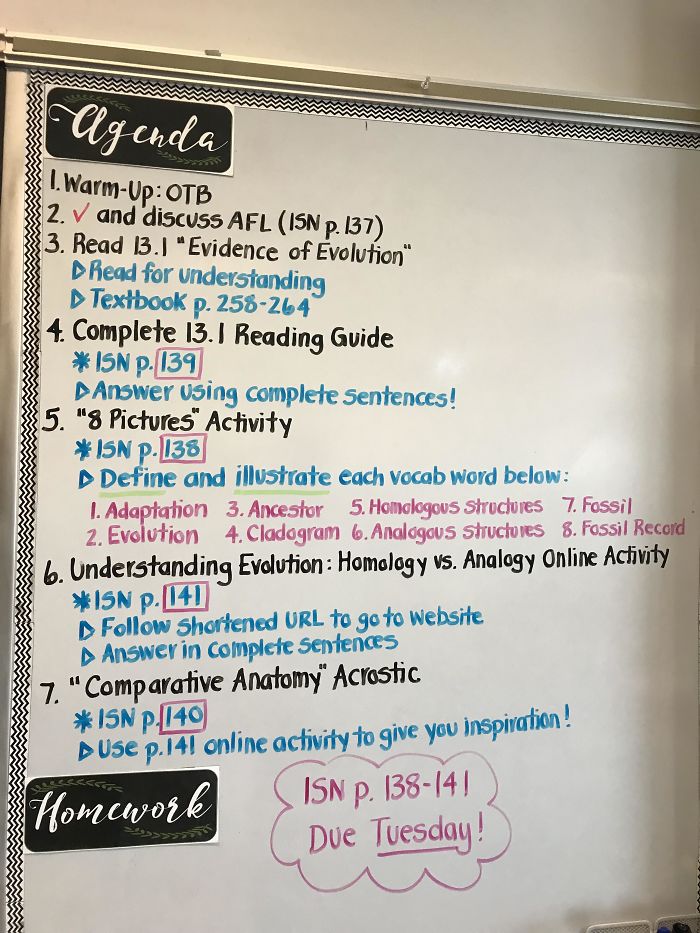 Agenda
1. Warm-Up: OTB
2. ✓ and discuss AFL (ISN p. 137)
3. Read 13.1 "Evidence of Evolution"
▷ Read for understanding
▷ Textbook p. 258-264
4. Complete 13.1 Reading Guide
* ISN p. 139
▷ Answer using complete sentences!
5. "8 Pictures" Activity
* ISN p. 138
▷ Define and illustrate each vocab word below:
1. Adaptation 3. Ancestor 5. Homologous Structures 7. Fossil
2. Evolution 4. Cladogram 6. Analogous Structures 8. Fossil Record
6. Understanding Evolution: Homology vs. Analogy Online Activity
* ISN p. 141
▷ Follow shortened URL to go to website
▷ Answer in complete sentences
7. "Comparative Anatomy" Acrostic
* ISN p. 140
▷ Use p. 141 online activity to give you inspiration!
Homework
ISN p. 138-141
Due Tuesday!